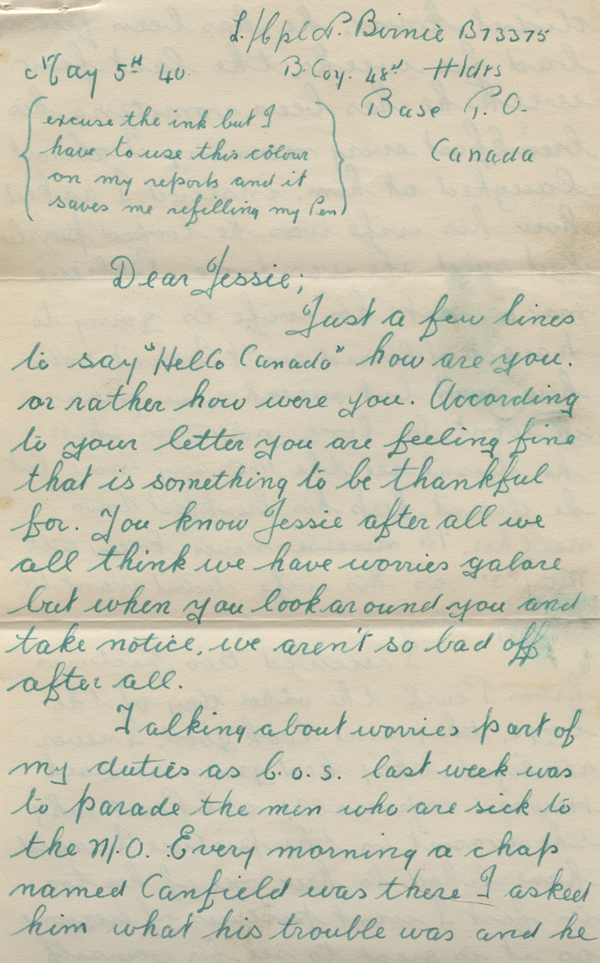 L/Cpl. P. Birnie B73375
May 5th 40.
B. Coy. 48th Hldrs
Base P.O.
Canada
(excuse the ink but I
have to use this colour
on my reports and it
saves me refilling my Pen)
Dear Jessie;
Just a few lines
to say "Hello Canada" how are you.
or rather how were you. According
to your letter you are feeling fine
that is something to be thankful
for. You know Jessie after all we
all think we have worries galore
but when you look around you and
take notice, we aren't so bad off
after all.
Talking about worries part of
my duties as C.O.S. last week was
to parade the men who are sick to
the M.O. Every morning a chap
named Canfield was there I asked
him what his trouble was and he